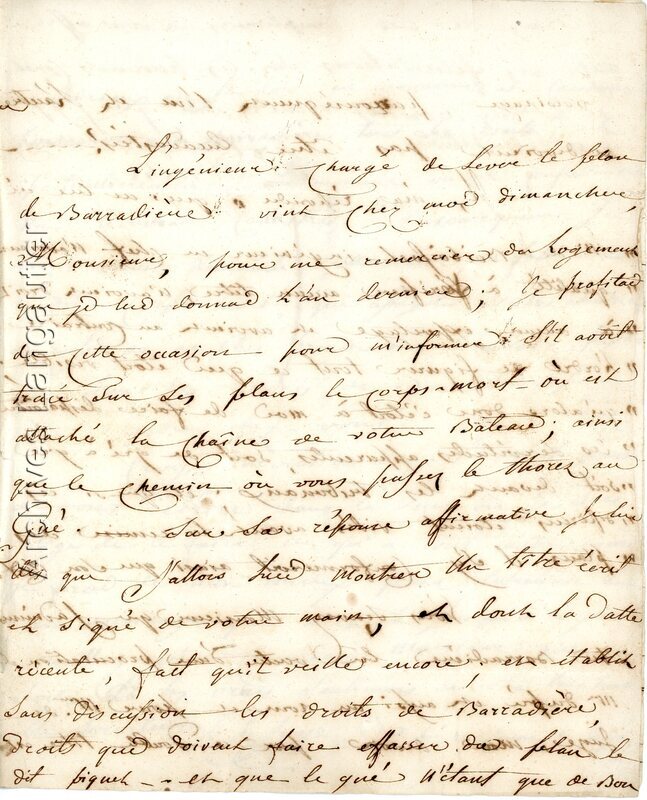 L'ingénieur, chargé de lever le plan
de Barradière vint chez moi dimanche,
Monsieur, pour me remercier du Logement
que je lui donnai l'an dernier; je profitai
de cette occasion pour m'informer s'il avoit
tracé sur ses plans le corps-mort où est
attaché la chaîne de votre Bateau; ainsi
que le chemin où vous passez le thorez au
Gué. Sur sa réponse affirmative je lui
dis que J'allois lui montrer un titre écrit
et signé de votre main, et dont la datte
récente, fait qu'il veille encore, et établit
sans discussion les droits de Barradière,
droits qui doivent faire effasser du plan le
dit piquet - et que le gué n'étant que de Bon
Archives Langautier